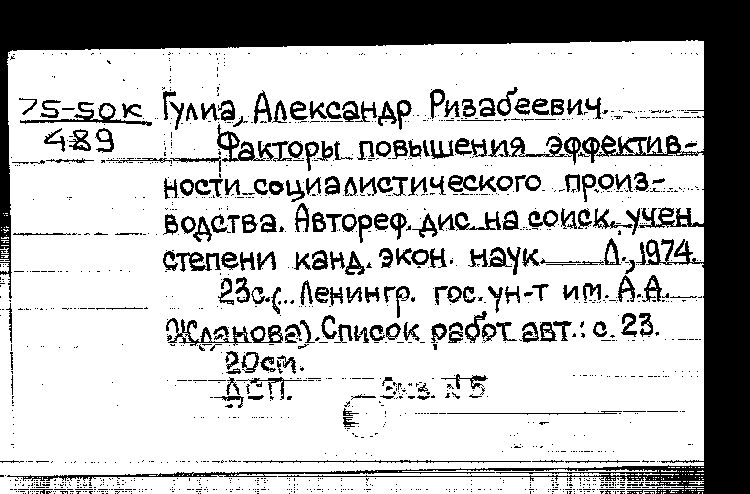 75-50к Гулиа, Александр Ризабеевич.
489 Факторы повышения эффектив-
ности социалистического произ-
водства. Автореф. дис. на соиск. учен.
степени канд. экон. наук. Л., 1974.
23с. (Ленингр. гос. ун-т им. А.А.
Жданова). Список работ авт.: с. 23.
20см.
ДСП. Экз. N 5